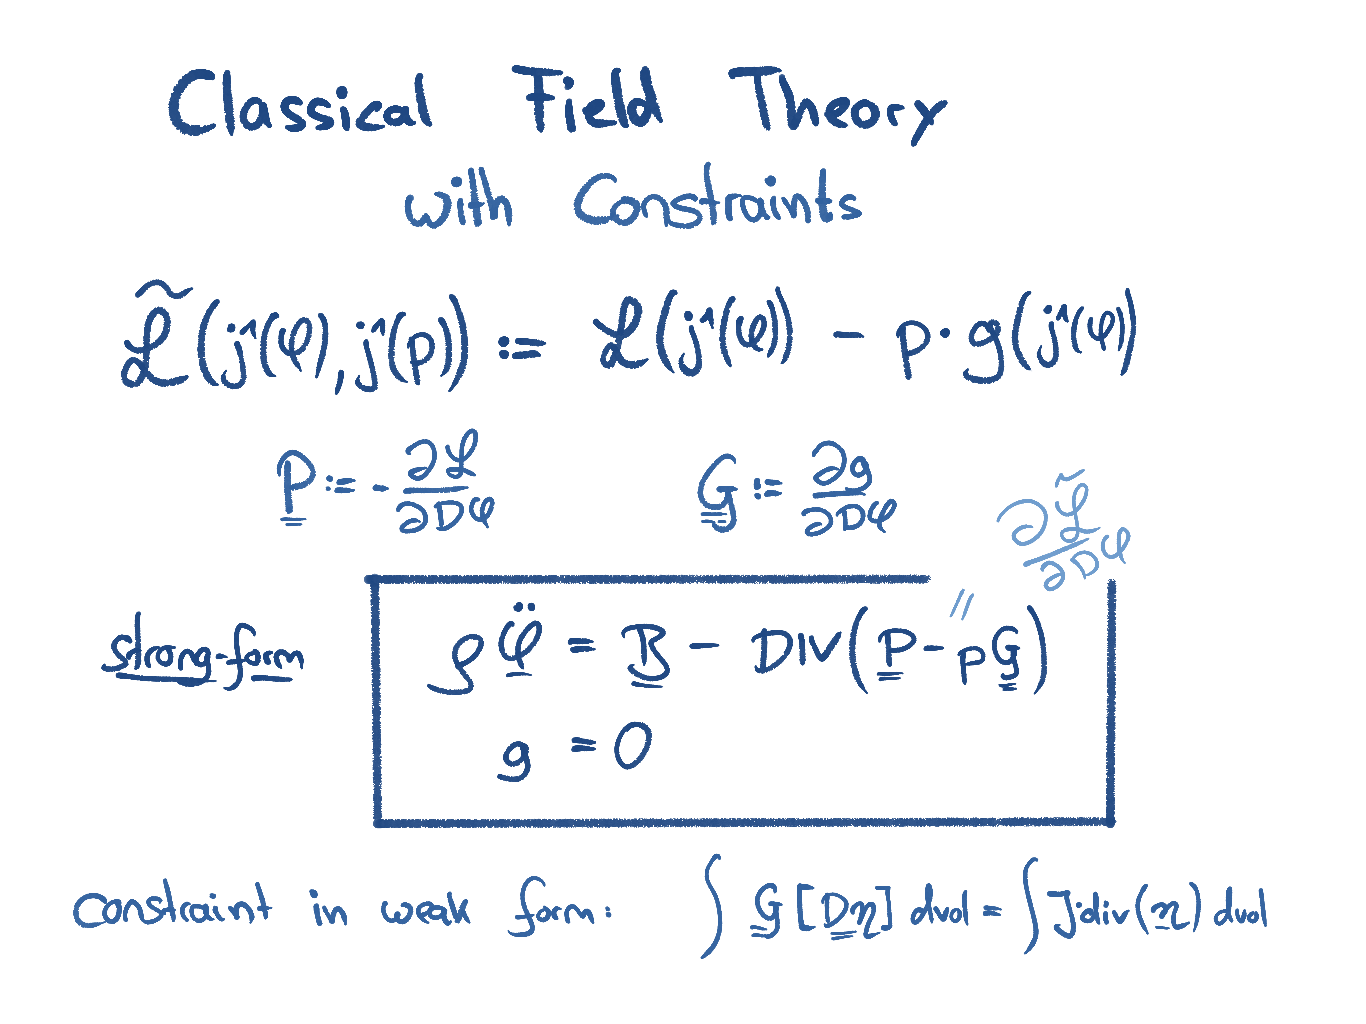 Classical Field Theory
with Constraints
ℒ̃(j¹(φ), j¹(p)) := ℒ(j¹(φ)) - p · g(j¹(φ))
P := - ∂ℒ/∂Dφ G := ∂g/∂Dφ
∂ℒ̃/∂Dφ
//
strong-form ρ φ̈ = B - DIV(P - pG)
g = 0
Constraint in weak form: ∫ G [Dη] dvol = ∫ J·div(η) dvol